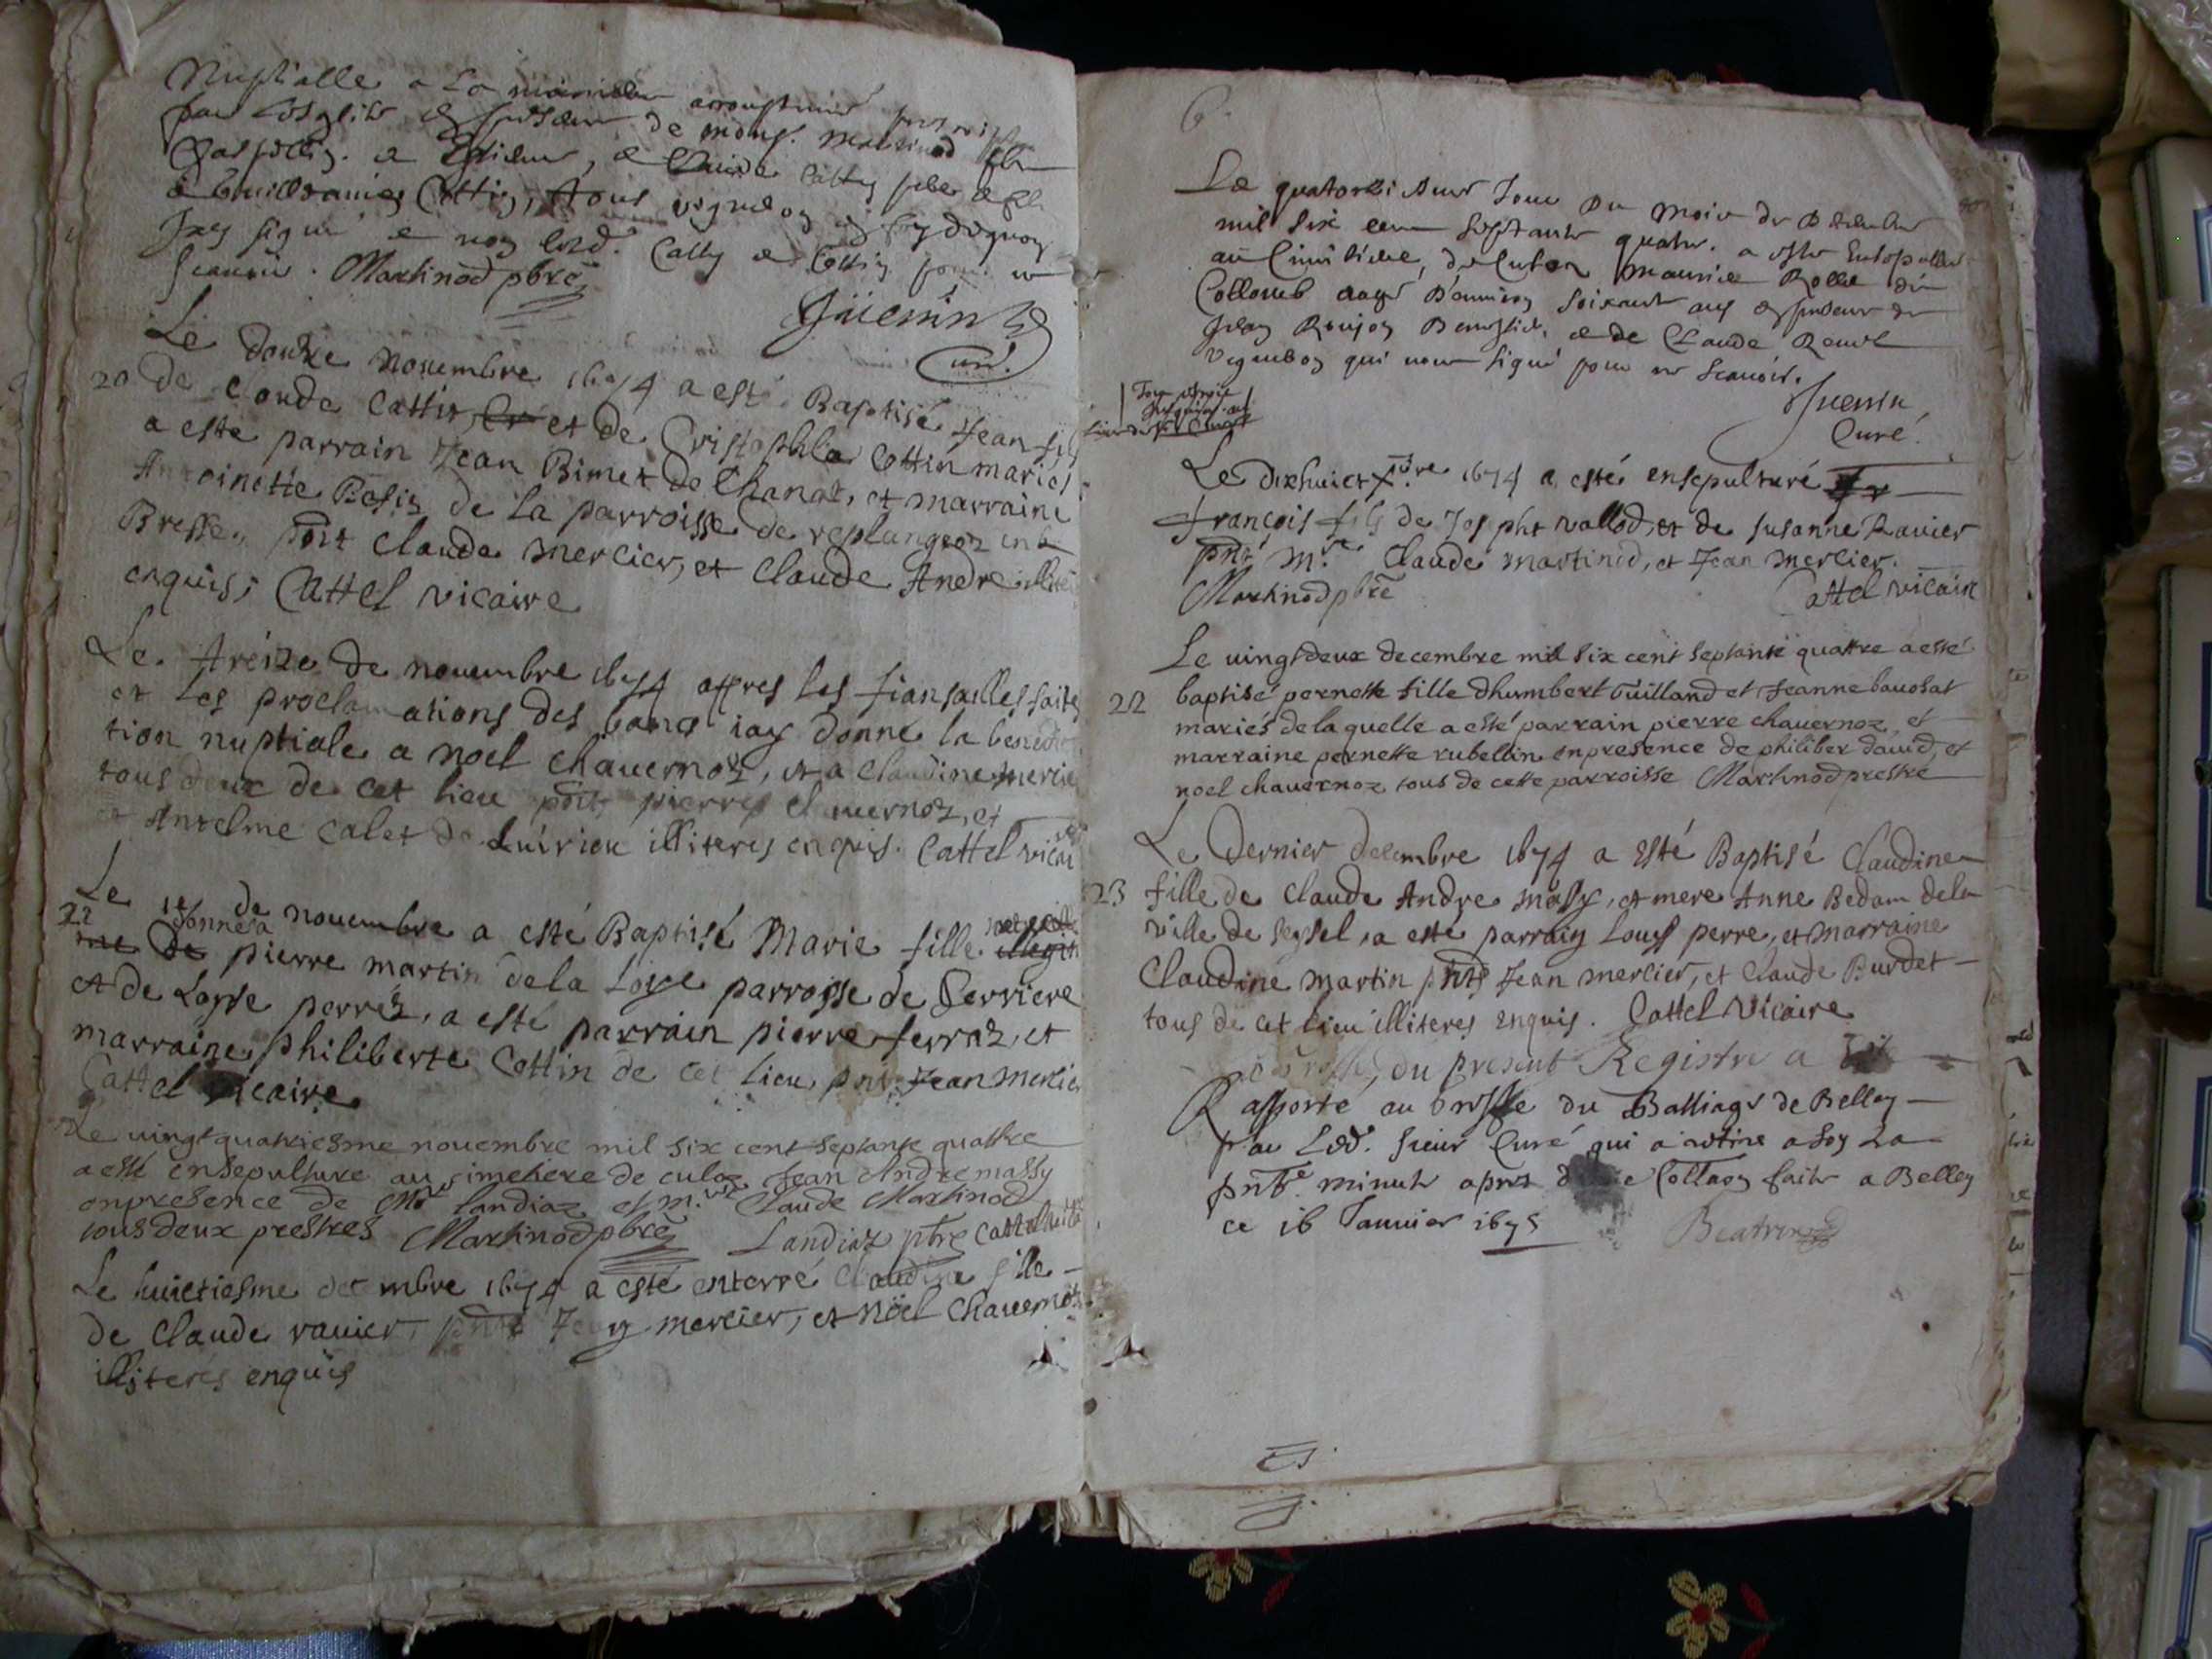 Nuptialle a la maniere accoustumé
par Leglise en presence de mons. Martinod pbre
Jay signé e non lesd. Catty e Cottin pour ne
scauoir. Martinod pbre
Guemin
curé.
Le douze nouembre 1674 a esté Baptisé Jean fils
20 de Claude Cattin et de Cristophla Cottin mariés
a esté parrain Jean Bimet de Chanaz, et marraine
Antoinette Basin de la parroisse de replangeon en
Bresse, pnt Claude mercier, et Claude Andre illiteres
enquis, Cattel vicaire
Le treize de nouembre 1674 appres les fiansailles faites
et les proclamations des bancs iay donné la benedic
tion nuptiale a noel chauernoz, et a Claudine mercier
tous deux de cet lieu pnts pierre chauernoz, et
et Antelme Calet de Luirieu illiteres enquis. Cattel vicaire
Le 18 de nouembre a esté Baptisé Marie fille naturelle
donnée a pierre martin de la Loyse parroisse de Serriere
et de Loyse perrez, a esté parrain pierre ferraz, et
marraine philiberte Cottin de cet lieu, pnt Jean mercier
Cattel vicaire
Le uingtquatriesme nouembre mil six cent septante quattre
a esté ensepulture au cimetiere de culoz Jean Andre massy
enpresence de Mre landiaz et m.re Claude Martinod
tous deux prestres Martinod pbre Landiaz ptre Cattel vicaire
Le huictiesme decembre 1674 a esté enterré Claudine fille
de Claude rauier, pnts Jean mercier, et Nöel Chauernoz
illiteres enquis
6.
Le quatorziesme Jour du mois de Decembre
mil six cent septante quatre a esté Ensepulturé
au Cimitiere de Culoz Maurice Rolle dit
Collomb aagé d'enuiron soixante ans en presence de
Jean Roujon et de Claude Rauit
Vigneron qui nont signé pour ne scauoir.
Guemin
Curé.
Le dixhuict Xbre 1674 a esté ensepulturé
françois fils de Joseph vallod, et de susanne Rauier
pnt m.re Claude martinod, et Jean mercier.
Martinod pbre Cattel vicaire
Le uingtdeux decembre mil six cent septante quattre a esté
22 baptisé pernette fille dhumbert Guilland et Jeanne bauosat
mariés de la quelle a esté parrain pierre chauernoz, et
marraine pernette rubellin enpresence de philiber dauid, et
noel chauernoz tous de cette parroisse Martinod prestre
Le dernier decembre 1674 a Esté Baptisé Claudine
23 fille de Claude Andre massy, et mere Anne Bedam dela
ville de seyssel, a esté parrain Louys perre, et marraine
Claudine martin pnts Jean mercier, et Claude Burdet
tous de cet lieu illiteres enquis. Cattel vicaire
du present Registre a Esté
Rapporté au Greffe du Balliage de Belley
par Led. sieur Curé qui a retiré a soy La
pnte minute apres Collaon faite a Belley
ce 16 Januier 1675